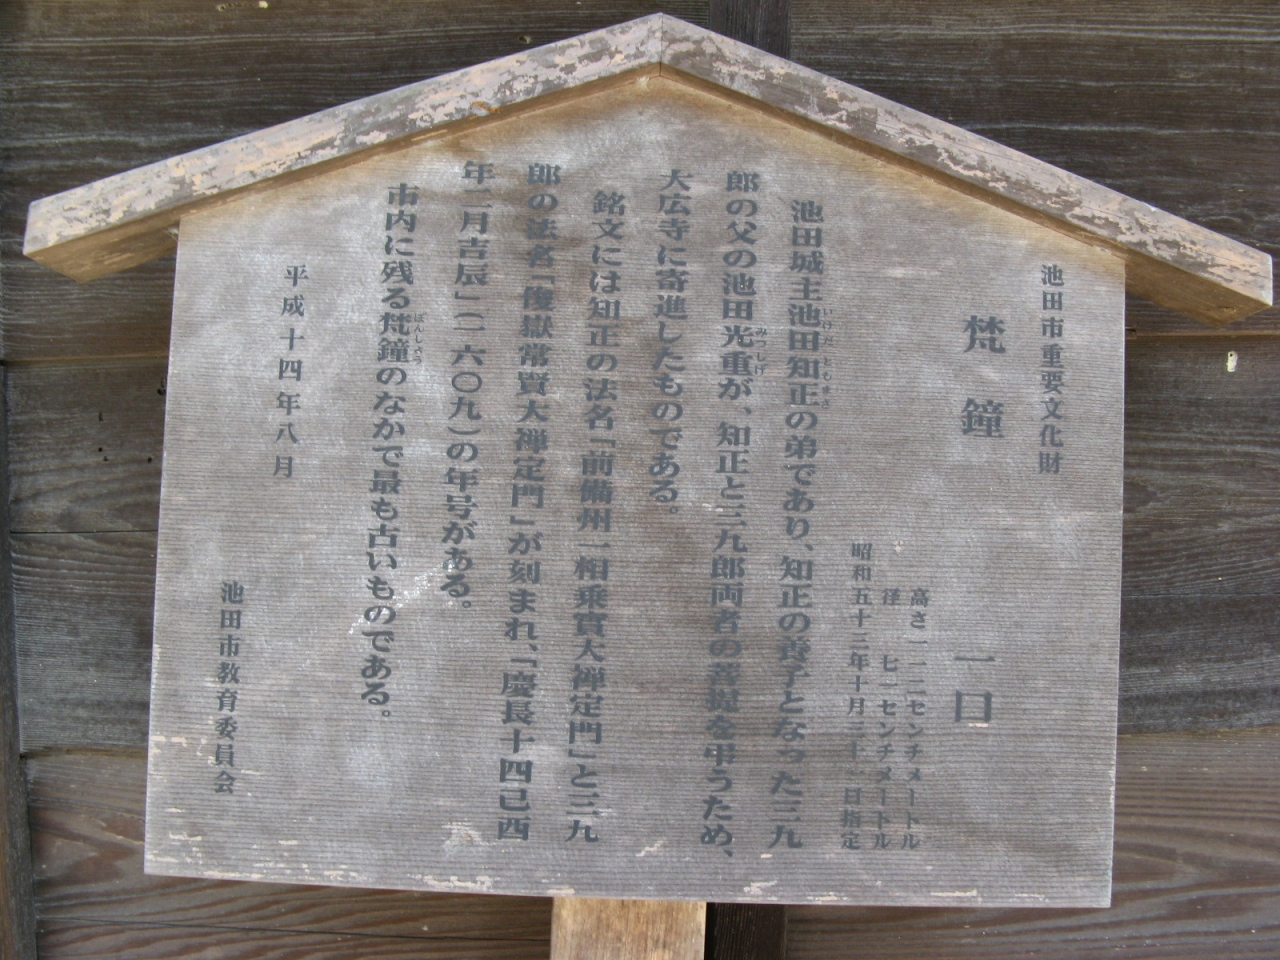 池田市重要文化財
梵鐘 一口
高さ一一二センチメートル
径 七一センチメートル
昭和五十三年十月三十一日指定
池田城主池田知正の弟であり、知正の養子となった三九
郎の父の池田光重が、知正と三九郎両者の菩提を弔うため、
大広寺に寄進したものである。
銘文には知正の法名「前備州一相乗賓大禅定門」と三九
郎の法名「俊嶽常賢大禅定門」が刻まれ、「慶長十四己酉
年二月吉辰」（一六〇九）の年号がある。
市内に残る梵鐘のなかで最も古いものである。
平成十四年八月
池田市教育委員会